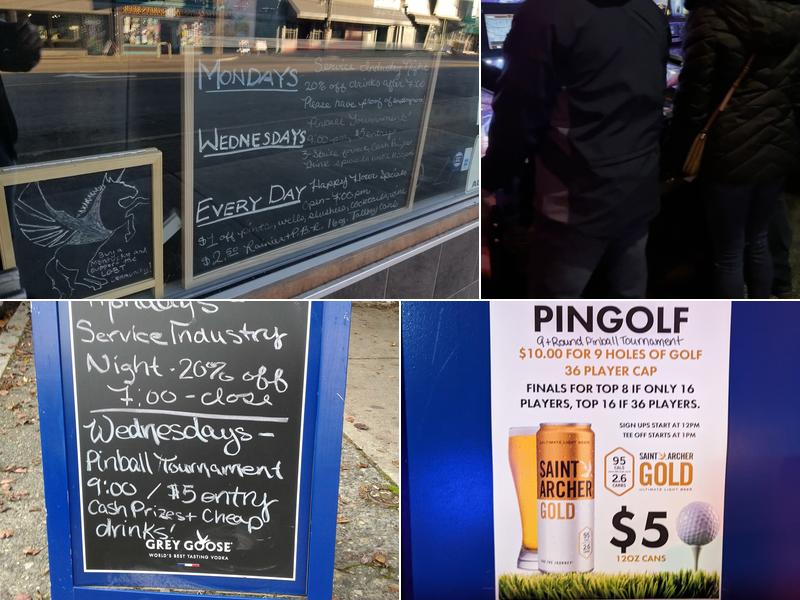 MONDAYS
Service Industry Night
20% off drinks after 7:00
Please have proof of employment
WEDNESDAYS
Pinball Tournament!
9:00 pm, $5 entry
3-Strike format, Cash Prizes
Drink specials until
EVERY DAY
Happy Hour Specials
open-7:00 pm
$1 off pints, wells, slushies, cocktails, wine
$2.50 Rainier + P.B.R. 16oz. Tallboy Cans
Buy a
and
support the
LGBT
community!
Mondays -
Service Industry
Night - 20% off
7:00 - close
Wednesdays -
Pinball Tournament
9:00 / $5 entry
Cash Prizes + Cheap
drinks!
GREY GOOSE
WORLD'S BEST TASTING VODKA
PINGOLF
9+Round Pinball Tournament
$10.00 FOR 9 HOLES OF GOLF
36 PLAYER CAP
FINALS FOR TOP 8 IF ONLY 16
PLAYERS, TOP 16 IF 36 PLAYERS.
SIGN UPS START AT 12PM
TEE OFF STARTS AT 1PM
ULTIMATE LIGHT BEER
SAINT
ARCHER
GOLD
95
CALS
2.6
CARBS
SAINT ARCHER
GOLD
ULTIMATE LIGHT BEER
$5
12OZ CANS